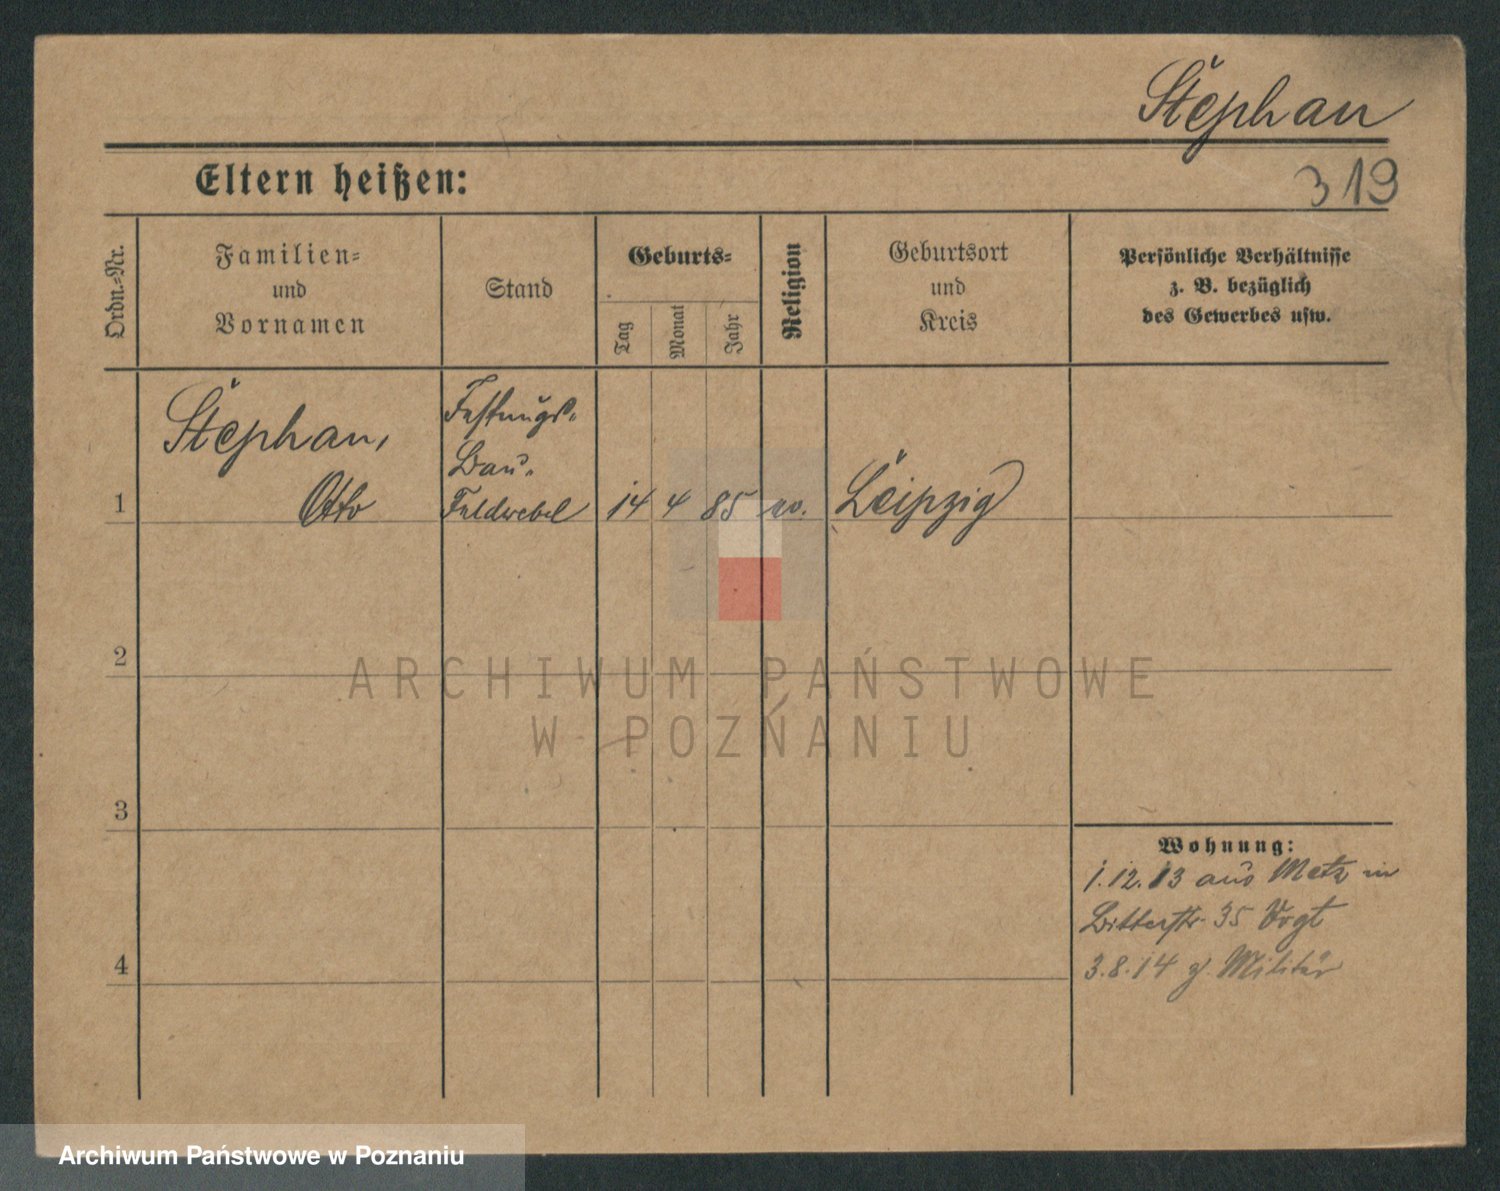 Stephan
319
Eltern heißen:
Ordn.-Nr.
Familien-
und
Vornamen
Stand
Geburts-
Tag
Monat
Jahr
Religion
Geburtsort
und
Kreis
Persönliche Verhältnisse
z. B. bezüglich
des Gewerbes usw.
1
Stephan,
Otto
Festungs-
Bau-
Feldwebel
14 4 85 ev. Leipzig
2
ARCHIWUM PAŃSTWOWE
W POZNANIU
3
Wohnung:
1.12.13 aus Metz in
Ritterstr. 35 Vogt
3.8.14 z. Militär
4
Archiwum Państwowe w Poznaniu